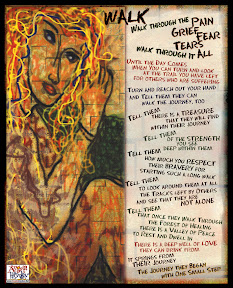 WALK
WALK THROUGH THE PAIN
GRIEF
FEAR
TEARS
WALK THROUGH IT ALL
UNTIL THE DAY COMES
WHEN YOU CAN TURN AND LOOK
AT THE TRAIL YOU HAVE LEFT
FOR OTHERS WHO ARE SUFFERING
TURN AND REACH OUT YOUR HAND
AND TELL THEM THEY CAN
WALK THE JOURNEY, TOO
TELL THEM
THERE IS A TREASURE
THAT THEY WILL FIND
WITHIN THEIR JOURNEY
TELL THEM
OF THE STRENGTH
YOU SEE
DEEP WITHIN THEM
TELL THEM
HOW MUCH YOU RESPECT
THEIR BRAVERY FOR
STARTING SUCH A LONG WALK
TELL THEM
TO LOOK AROUND THEM AT ALL
THE TRACKS LEFT BY OTHERS
AND SEE THAT THEY ARE
NOT ALONE
TELL THEM
THAT ONCE THEY WALK THROUGH
THE FOREST OF HEALING
THERE IS A VALLEY OF PEACE
TO REST AND DWELL IN
THERE IS A DEEP WELL OF LOVE
THEY CAN DRINK FROM
IT SPRINGS FROM
THEIR JOURNEY
THE JOURNEY THEY BEGAN
WITH ONE SMALL STEP